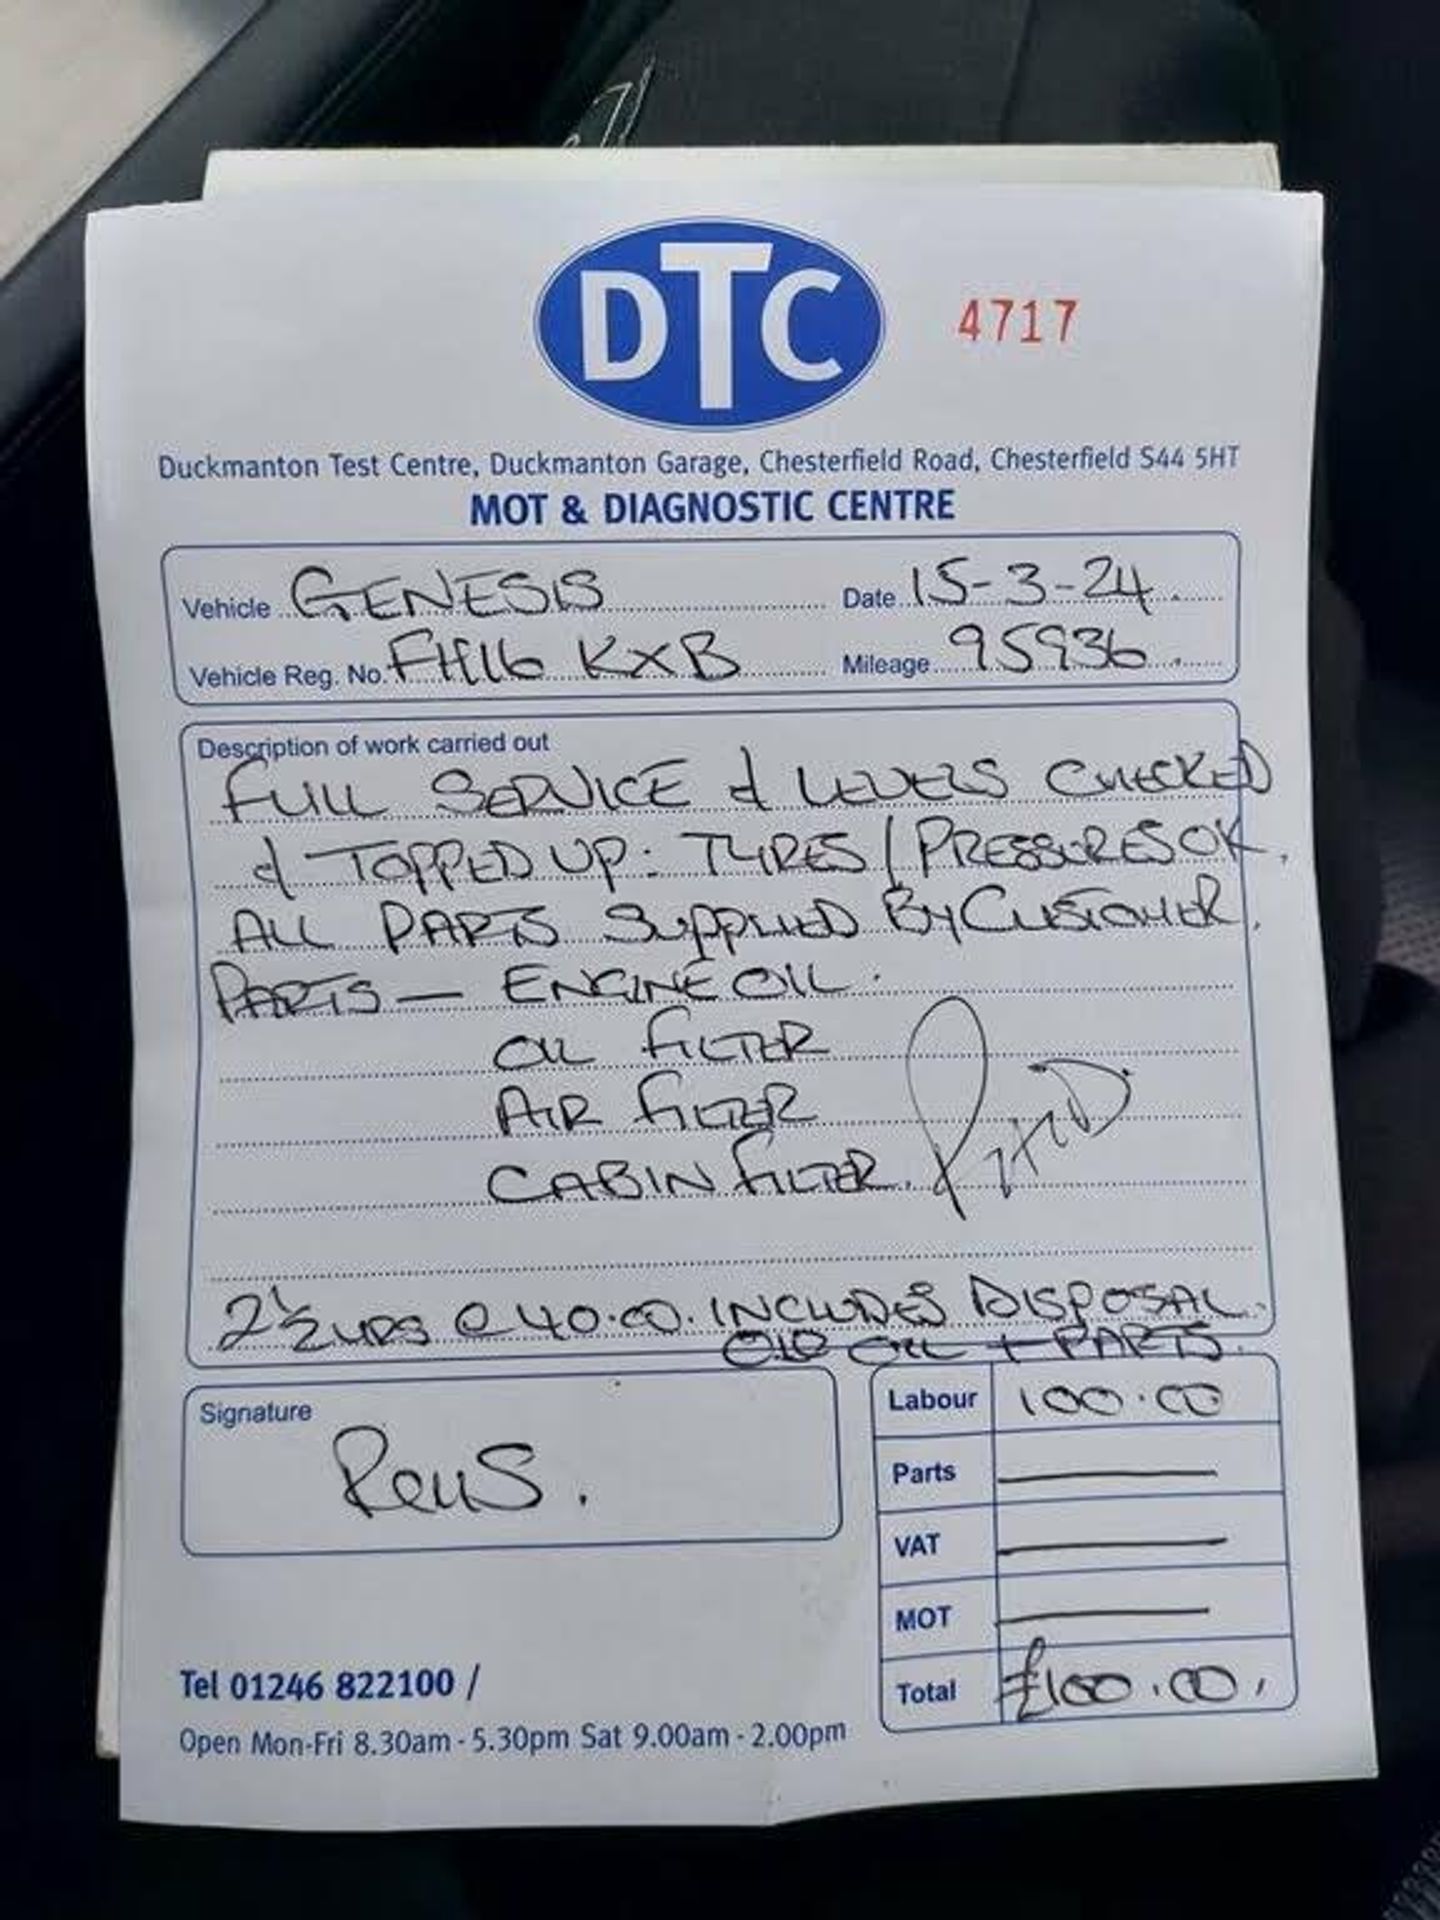 DTC
4717
Duckmanton Test Centre, Duckmanton Garage, Chesterfield Road, Chesterfield S44 5HT
MOT & DIAGNOSTIC CENTRE
Vehicle GENESIS Date 15-3-24.
Vehicle Reg. No. FH16 KXB Mileage 95936.
Description of work carried out
FULL SERVICE & LEVELS CHECKED
& TOPPED UP: TYRES / PRESSURES OK.
ALL PARTS SUPPLIED BY CUSTOMER.
PARTS — ENGINE OIL.
OIL FILTER
AIR FILTER
CABIN FILTER.
2½ HRS @ 40.00. INCLUDES DISPOSAL
OLD OIL + PARTS.
Signature
Labour 100.00
Parts —
VAT —
MOT —
Total £100.00.
Tel 01246 822100 /
Open Mon-Fri 8.30am - 5.30pm Sat 9.00am - 2.00pm